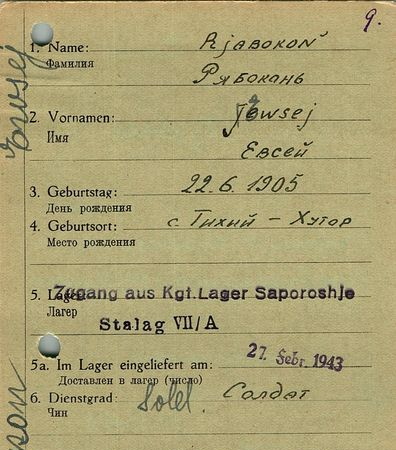 9.
1. Name: Rjabokoń
Фамилия Рябокань
2. Vornamen: Jewsej
Имя
Евсей
3. Geburtstag: 22.6.1905
День рождения
4. Geburtsort: с. Тихий - Хутор
Место рождения
5. Lager: Zugang aus Kgf. Lager Saporoshje
Лагер
Stalag VII/A
5a. Im Lager eingeliefert am: 27. Febr. 1943
Доставлен в лагер (число)
6. Dienstgrad: Solel. Солдат
Чин
Ewsej